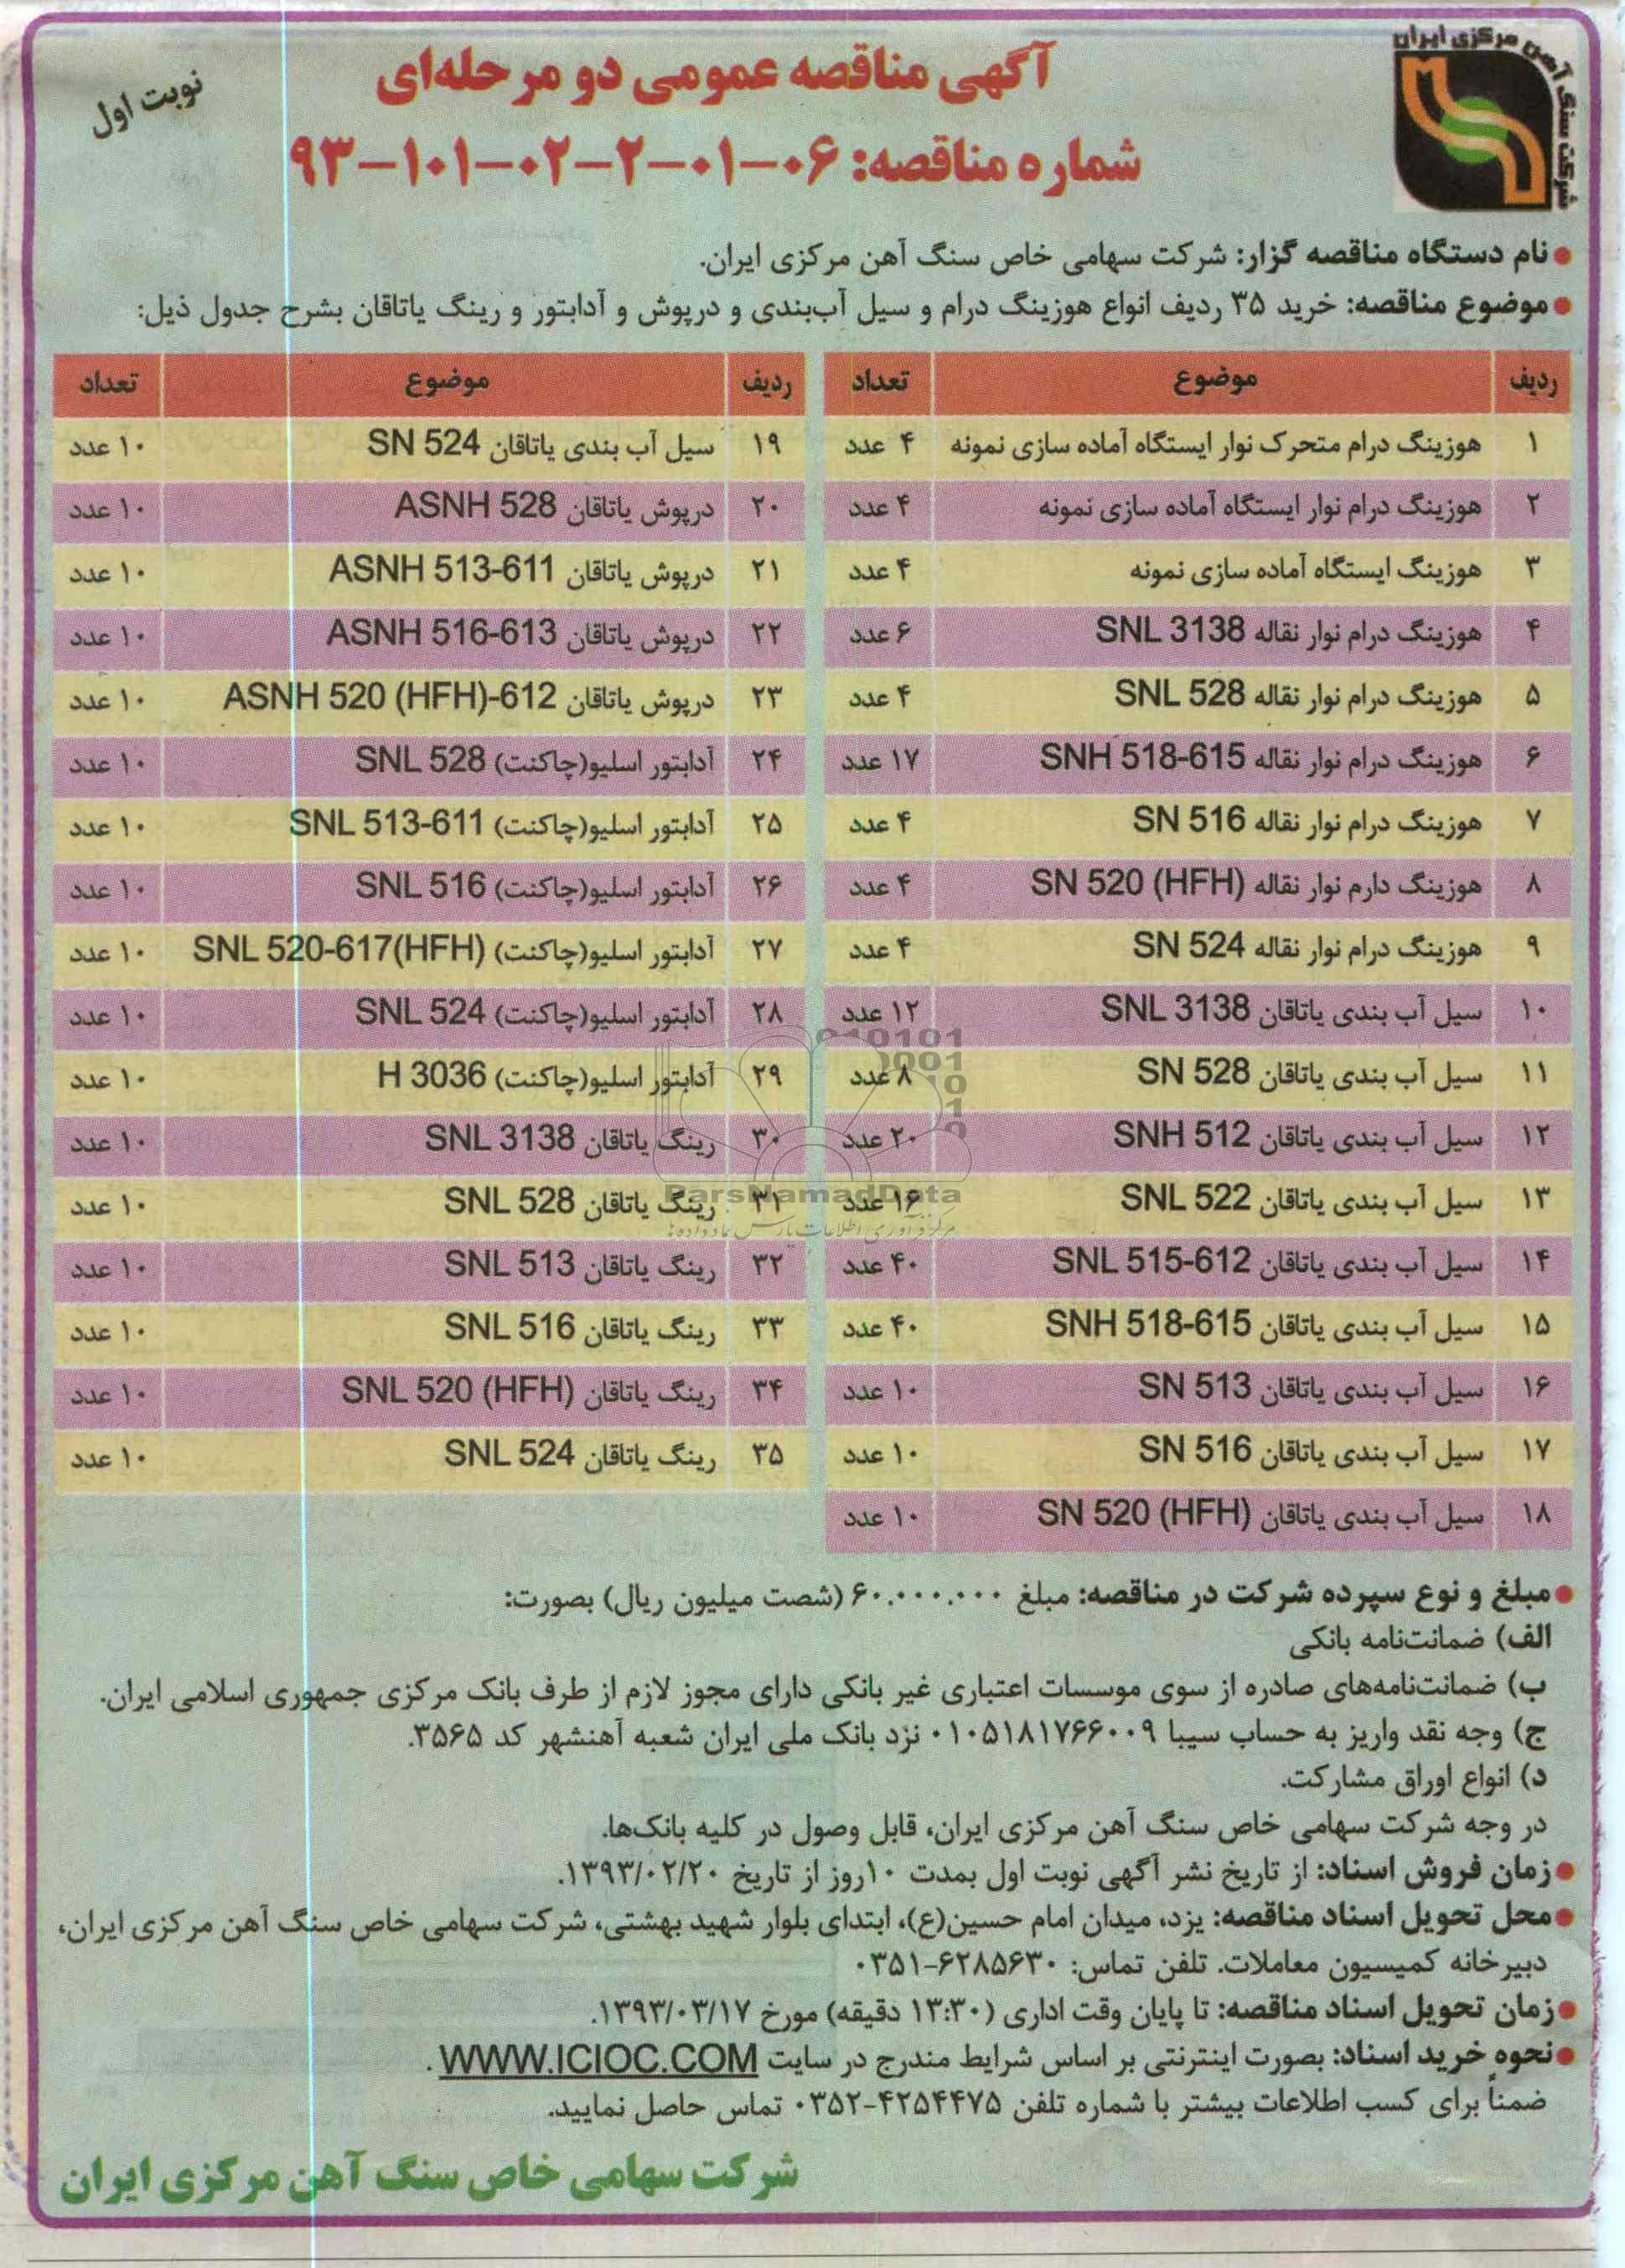 شرکت سنگ آهن مرکزی ایران
آگهی مناقصه عمومی دو مرحله‌ای
نوبت اول
شماره مناقصه: ۰۶-۰۱-۲-۰۲-۱۰۱-۹۳
●نام دستگاه مناقصه گزار: شرکت سهامی خاص سنگ آهن مرکزی ایران.
●موضوع مناقصه: خرید ۳۵ ردیف انواع هوزینگ درام و سیل آب‌بندی و درپوش و آدابتور و رینگ یاتاقان بشرح جدول ذیل:
ردیف موضوع تعداد
۱ هوزینگ درام متحرک نوار ایستگاه آماده سازی نمونه ۴ عدد
۲ هوزینگ درام نوار ایستگاه آماده سازی نمونه ۴ عدد
۳ هوزینگ ایستگاه آماده سازی نمونه ۴ عدد
۴ هوزینگ درام نوار نقاله SNL 3138 ۶ عدد
۵ هوزینگ درام نوار نقاله SNL 528 ۴ عدد
۶ هوزینگ درام نوار نقاله SNH 518-615 ۱۷ عدد
۷ هوزینگ درام نوار نقاله SN 516 ۴ عدد
۸ هوزینگ دارم نوار نقاله SN 520 (HFH) ۴ عدد
۹ هوزینگ درام نوار نقاله SN 524 ۴ عدد
۱۰ سیل آب بندی یاتاقان SNL 3138 ۱۲ عدد
۱۱ سیل آب بندی یاتاقان SN 528 ۸ عدد
۱۲ سیل آب بندی یاتاقان SNH 512 ۲۰ عدد
۱۳ سیل آب بندی یاتاقان SNL 522 ۱۶ عدد
۱۴ سیل آب بندی یاتاقان SNL 515-612 ۴۰ عدد
۱۵ سیل آب بندی یاتاقان SNH 518-615 ۴۰ عدد
۱۶ سیل آب بندی یاتاقان SN 513 ۱۰ عدد
۱۷ سیل آب بندی یاتاقان SN 516 ۱۰ عدد
۱۸ سیل آب بندی یاتاقان SN 520 (HFH) ۱۰ عدد
ردیف موضوع تعداد
۱۹ سیل آب بندی یاتاقان SN 524 ۱۰ عدد
۲۰ درپوش یاتاقان ASNH 528 ۱۰ عدد
۲۱ درپوش یاتاقان ASNH 513-611 ۱۰ عدد
۲۲ درپوش یاتاقان ASNH 516-613 ۱۰ عدد
۲۳ درپوش یاتاقان ASNH 520 (HFH)-612 ۱۰ عدد
۲۴ آدابتور اسلیو(چاکنت) SNL 528 ۱۰ عدد
۲۵ آدابتور اسلیو(چاکنت) SNL 513-611 ۱۰ عدد
۲۶ آدابتور اسلیو(چاکنت) SNL 516 ۱۰ عدد
۲۷ آدابتور اسلیو(چاکنت) SNL 520-617(HFH) ۱۰ عدد
۲۸ آدابتور اسلیو(چاکنت) SNL 524 ۱۰ عدد
۲۹ آدابتور اسلیو(چاکنت) H 3036 ۱۰ عدد
۳۰ رینگ یاتاقان SNL 3138 ۱۰ عدد
۳۱ رینگ یاتاقان SNL 528 ۱۰ عدد
۳۲ رینگ یاتاقان SNL 513 ۱۰ عدد
۳۳ رینگ یاتاقان SNL 516 ۱۰ عدد
۳۴ رینگ یاتاقان SNL 520 (HFH) ۱۰ عدد
۳۵ رینگ یاتاقان SNL 524 ۱۰ عدد
ParsNamadData
مرکز فرآوری اطلاعات پارس نماد داده‌ها
●مبلغ و نوع سپرده شرکت در مناقصه: مبلغ ۶۰.۰۰۰.۰۰۰ (شصت میلیون ریال) بصورت:
الف) ضمانت‌نامه بانکی
ب) ضمانت‌نامه‌های صادره از سوی موسسات اعتباری غیر بانکی دارای مجوز لازم از طرف بانک مرکزی جمهوری اسلامی ایران.
ج) وجه نقد واریز به حساب سیبا ۰۱۰۵۱۸۱۷۶۶۰۰۹ نزد بانک ملی ایران شعبه آهنشهر کد ۳۵۶۵.
د) انواع اوراق مشارکت.
در وجه شرکت سهامی خاص سنگ آهن مرکزی ایران، قابل وصول در کلیه بانک‌ها.
●زمان فروش اسناد: از تاریخ نشر آگهی نوبت اول بمدت ۱۰روز از تاریخ ۱۳۹۳/۰۲/۲۰.
●محل تحویل اسناد مناقصه: یزد، میدان امام حسین(ع)، ابتدای بلوار شهید بهشتی، شرکت سهامی خاص سنگ آهن مرکزی ایران،
دبیرخانه کمیسیون معاملات. تلفن تماس: ۶۲۸۵۶۳۰-۰۳۵۱
●زمان تحویل اسناد مناقصه: تا پایان وقت اداری (۱۳:۳۰ دقیقه) مورخ ۱۳۹۳/۰۳/۱۷.
●نحوه خرید اسناد: بصورت اینترنتی بر اساس شرایط مندرج در سایت WWW.ICIOC.COM .
ضمناً برای کسب اطلاعات بیشتر با شماره تلفن ۴۲۵۴۴۷۵-۰۳۵۲ تماس حاصل نمایید.
شرکت سهامی خاص سنگ آهن مرکزی ایران